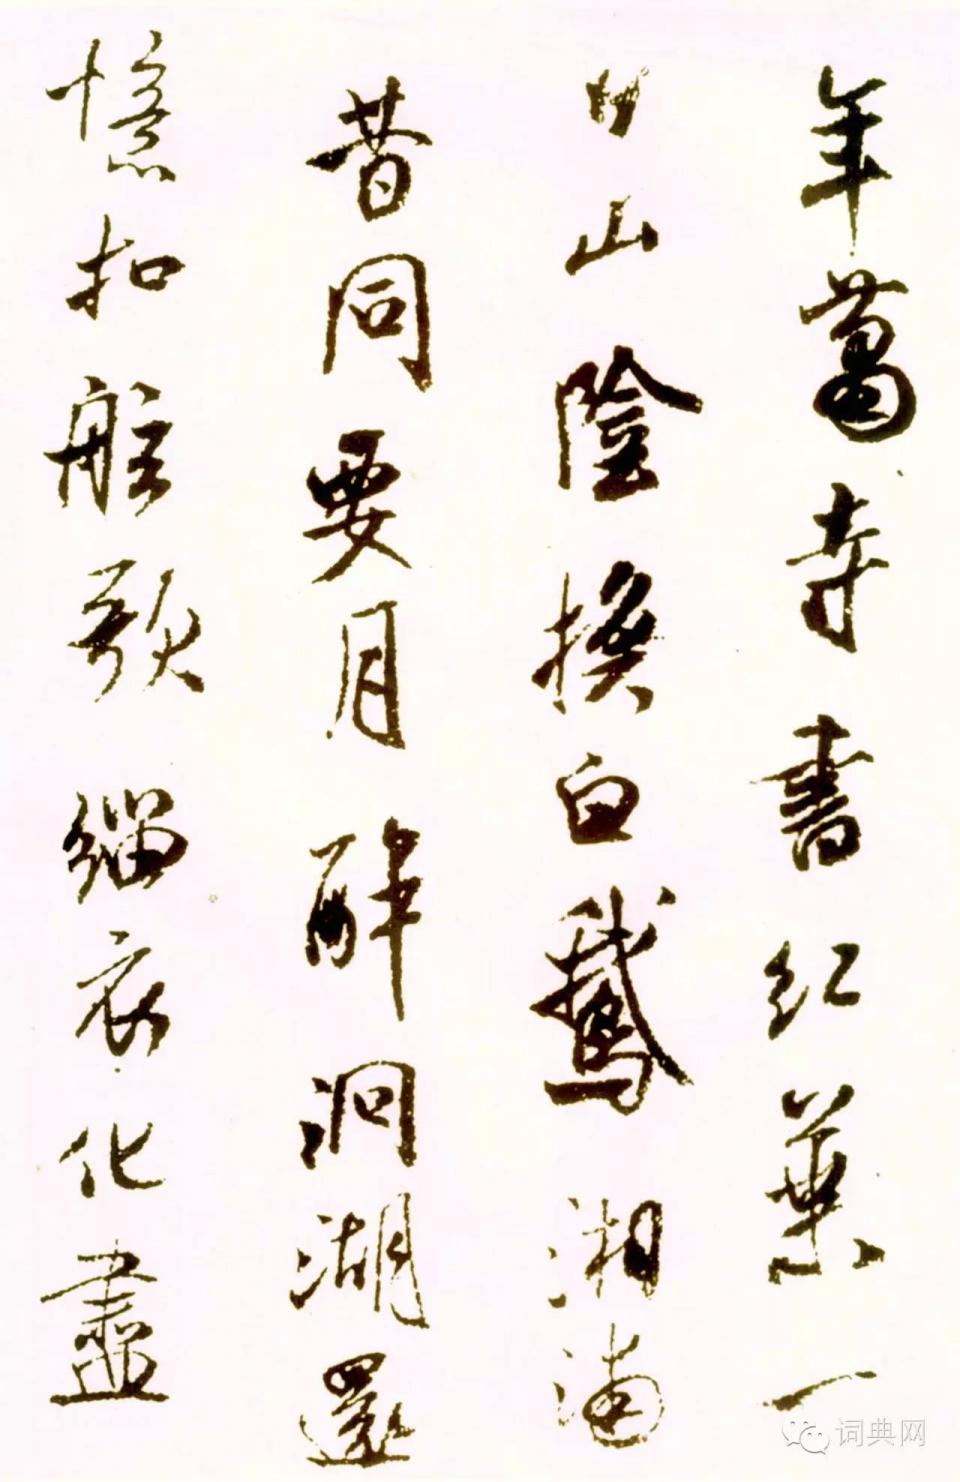 年蕭寺書紅葉一
日山陰換白鵝湘浦
昔同要月醉洞湖還
憶扣舷歌緇衣化盡
词典网